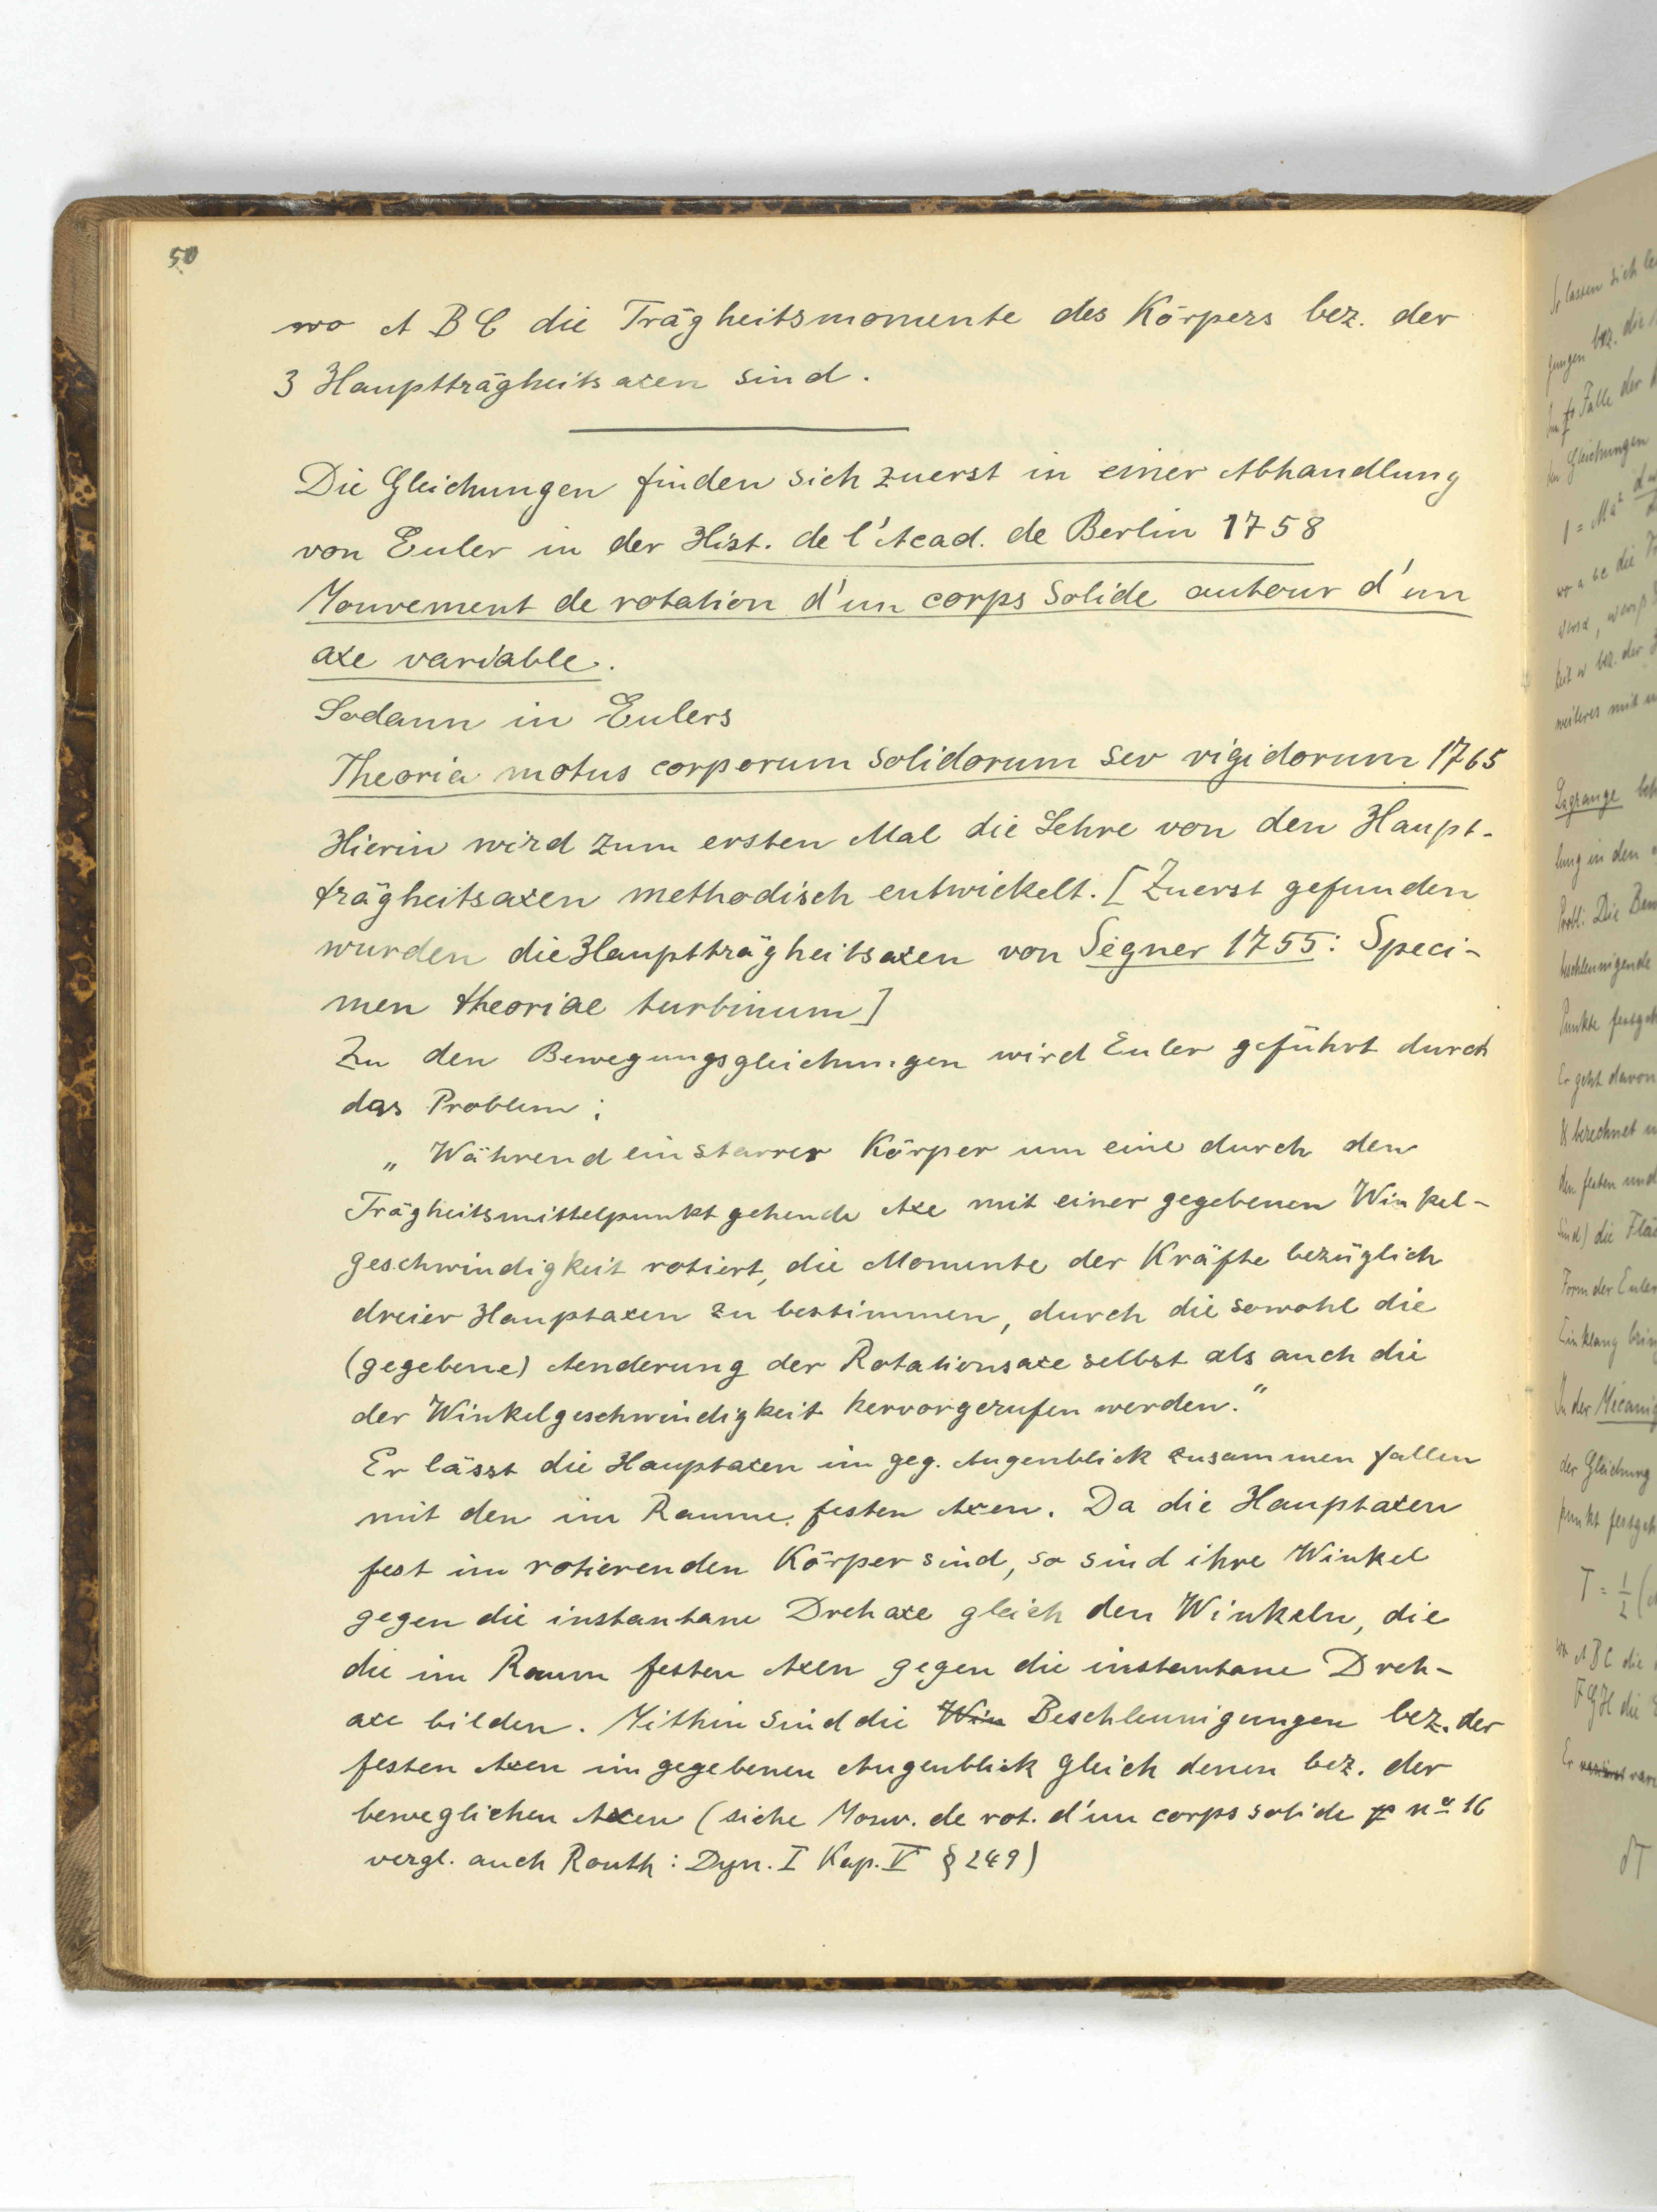 50
wo A B C die Trägheitsmomente des Körpers bez. der
3 Hauptträgheitsaxen sind.
Die Gleichungen finden sich zuerst in einer Abhandlung
von Euler in der Hist. de l'Acad. de Berlin 1758
Mouvement de rotation d'un corps solide autour d'un
axe variable.
Sodann in Eulers
Theoria motus corporum solidorum seu rigidorum 1765
Hierin wird zum ersten Mal die Lehre von den Haupt-
trägheitsaxen methodisch entwickelt. [Zuerst gefunden
wurden die Hauptträgheitsaxen von Segner 1755: Speci-
men theoriae turbinum]
Zu den Bewegungsgleichungen wird Euler geführt durch
das Problem:
„Während ein starrer Körper um eine durch den
Trägheitsmittelpunkt gehende Axe mit einer gegebenen Winkel-
geschwindigkeit rotiert, die Momente der Kräfte bezüglich
dreier Hauptaxen zu bestimmen, durch die sowohl die
(gegebene) Aenderung der Rotationsaxe selbst als auch die
der Winkelgeschwindigkeit hervorgerufen werden.“
Er lässt die Hauptaxen im geg. Augenblick zusammen fallen
mit den im Raume festen Axen. Da die Hauptaxen
fest im rotierenden Körper sind, so sind ihre Winkel
gegen die instantane Drehaxe gleich den Winkeln, die
die im Raum festen Axen gegen die instantane Dreh-
axe bilden. Mithin sind die Win Beschleunigungen bez. der
festen Axen im gegebenen Augenblick gleich denen bez. der
beweglichen Axen (siehe Mouv. de rot. d'un corps solide nº 16
vergl. auch Routh: Dyn. I Kap. V § 249)
Lagrange